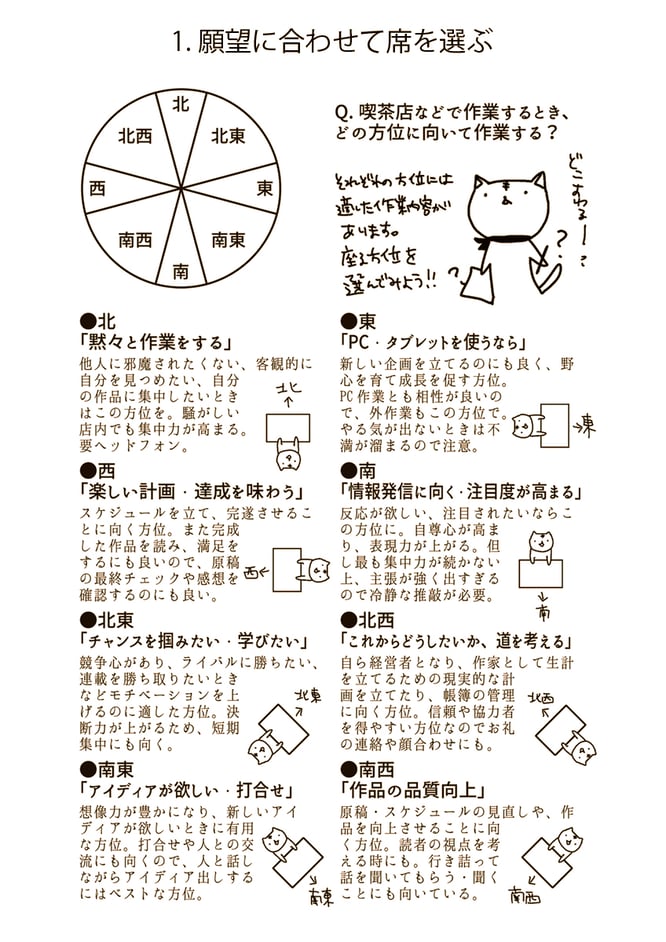 1. 願望に合わせて席を選ぶ
北
北西
北東
西
東
南西
南東
南
Q. 喫茶店などで作業するとき、
どの方位に向いて作業する？
それぞれの方位には
適した作業内容が
あります。
座る方位を
選んでみよう!!
どこすわるー？
?
?
●北
「黙々と作業をする」
他人に邪魔されたくない、客観的に
自分を見つめたい、自分
の作品に集中したいとき
はこの方位を。騒がしい
店内でも集中力が高まる。
要ヘッドフォン。
北
●東
「PC・タブレットを使うなら」
新しい企画を立てるのにも良く、野
心を育て成長を促す方位。
PC作業とも相性が良いの
で、外作業もこの方位で。
やる気が出ないときは不
満が溜まるので注意。
東
●西
「楽しい計画・達成を味わう」
スケジュールを立て、完遂させるこ
とに向く方位。また完成
した作品を読み、満足を
するにも良いので、原稿
の最終チェックや感想を
確認するのにも良い。
西
●南
「情報発信に向く・注目度が高まる」
反応が欲しい、注目されたいならこ
の方位に。自尊心が高ま
り、表現力が上がる。但
し最も集中力が続かない
上、主張が強く出すぎる
ので冷静な推敲が必要。
南
●北東
「チャンスを掴みたい・学びたい」
競争心があり、ライバルに勝ちたい、
連載を勝ち取りたいとき
などモチベーションを上
げるのに適した方位。決
断力が上がるため、短期
集中にも向く。
北東
●北西
「これからどうしたいか、道を考える」
自ら経営者となり、作家として生計
を立てるための現実的な計
画を立てたり、帳簿の管理
に向く方位。信頼や協力者
を得やすい方位なのでお礼
の連絡や顔合わせにも。
北西
●南東
「アイディアが欲しい・打合せ」
想像力が豊かになり、新しいアイ
ディアが欲しいときに有用
な方位。打合せや人との交
流にも向くので、人と話し
ながらアイディア出しする
にはベストな方位。
南東
●南西
「作品の品質向上」
原稿・スケジュールの見直しや、作
品を向上させることに向
く方位。読者の視点を考
える時にも。行き詰って
話を聞いてもらう・聞く
ことにも向いている。
南西